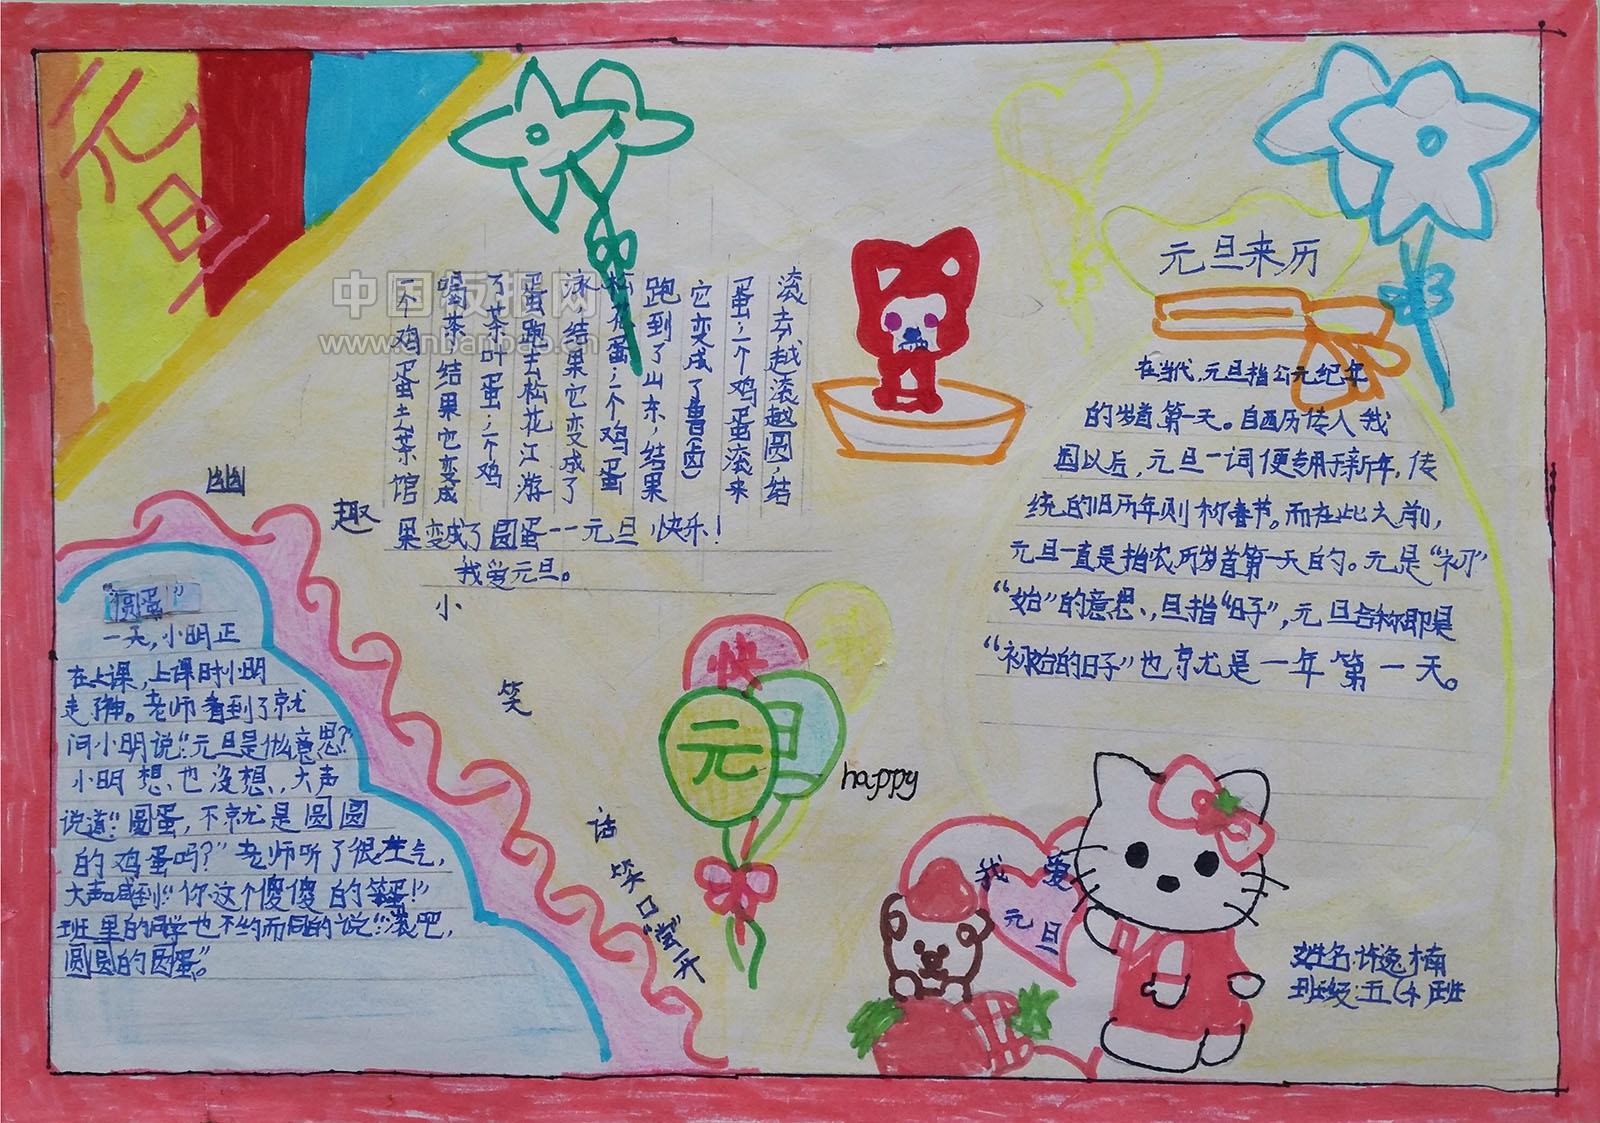 元旦
中国板报网
www.cnbanbao.cn
元旦来历
在当代，元旦指公元纪年
的岁首第一天。自西历传入我
国以后，元旦一词便专用于新年，传
统的旧历年则称春节。而在此之前，
元旦一直是指农历岁首第一天的。元是“初”
“始”的意思，旦指“日子”，元旦合称即是
“初始的日子”也就是一年第一天。
一个鸡蛋去茶馆
喝茶，结果它变成
了茶叶蛋；一个鸡
蛋跑去松花江游
泳，结果它变成了
松花蛋；一个鸡蛋
跑到了山东，结果
它变成了鲁（卤）
蛋；一个鸡蛋滚来
滚去越滚越圆，结
果变成了圆蛋——元旦快乐！
我爱元旦。
幽
趣
小
笑
话
笑口“常”开
“圆蛋”
一天，小明正
在上课，上课时小明
走神。老师看到了就
问小明说：“元旦是什么意思？”
小明想也没想，大声
说道：“圆蛋，不就是圆圆
的鸡蛋吗？”老师听了很生气，
大声喊到“你这个傻傻的笨蛋！”
班里的同学也不约而同的说：“滚吧，
圆圆的圆蛋”。
快
元
旦
happy
我爱
元旦
姓名：许逸楠